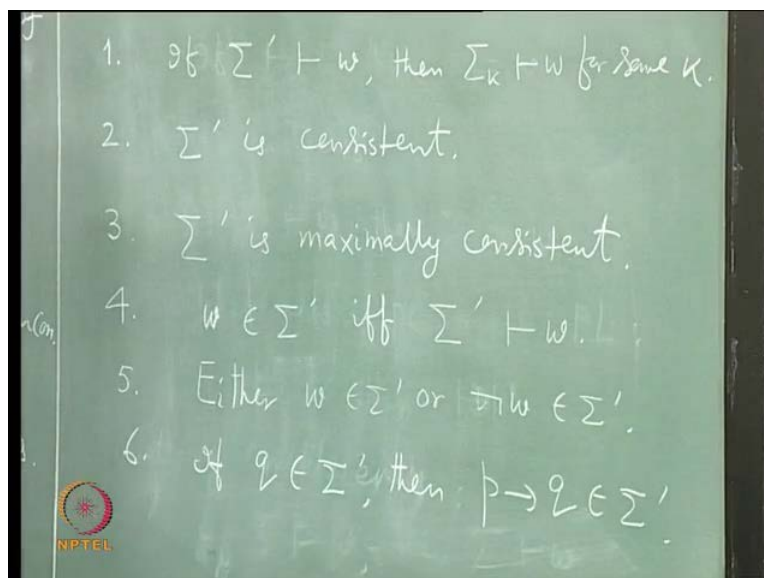 1. If Σ' ⊢ w, then Σ_K ⊢ w for some K.
2. Σ' is consistent.
3. Σ' is maximally consistent.
4. w ∈ Σ' iff Σ' ⊢ w.
5. Either w ∈ Σ' or ¬w ∈ Σ'.
6. If q ∈ Σ', then p → q ∈ Σ'.
NPTEL